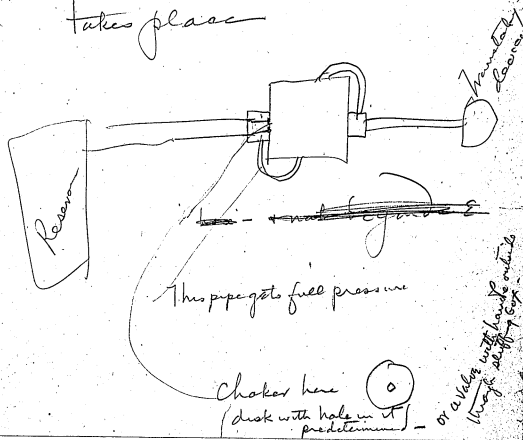 takes place
Reservo
This pipe gets full pressure
Choker here
(disk with hole in it
predetermined) -
or a valve with handle outside
through stuffing box -